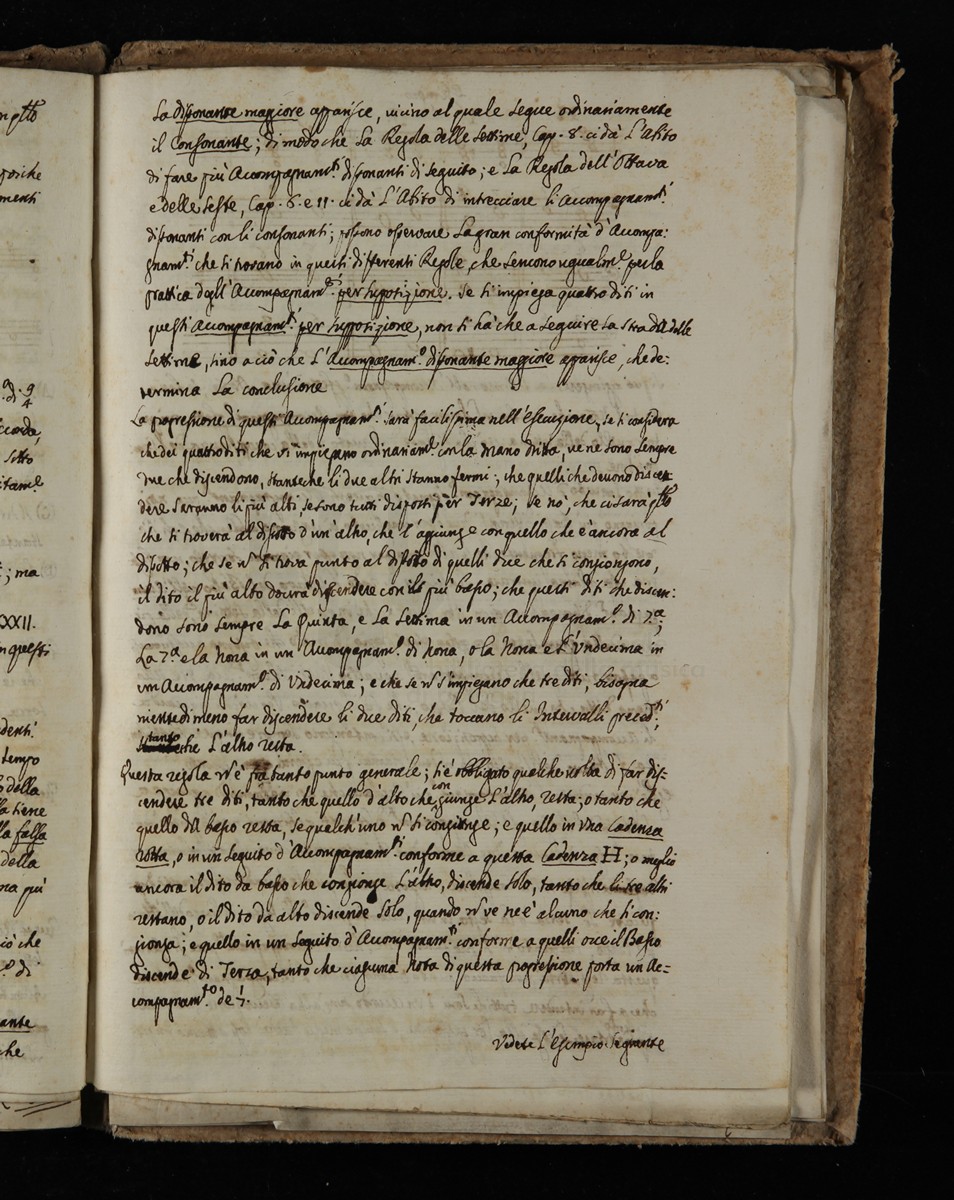 La dissonante maggiore apparisce, vicino al quale segue ordinariamente
il Consonante; di modo che La Regola delle settime, Cap. 8. ci dà L'Abito
di fare più Acompagnam.ti dissonanti di seguito; e La Regola dell'Ottava
e delle seste, Cap. 8. e 11. ci dà L'Abito di intrecciare li Accompagnam.ti
dissonanti con li consonanti; possono osservare La gran conformità d'Acompa:
gnam.ti che si trovano in questi differenti Regole, che servono ugualm.e per la
prattica degl'Acompagnam.ti per supposizione. Se si impiega quattro diti in
questi Accompagnam.ti per supposizione, non si hà che a seguire La strada delle
settime, sino a ciò che L'Accompagnam.o dissonante maggiore apparisce, che de:
termina La conclusione
La progressione di questi Acompagnam.ti sarà facilissima nell'Esecuzione, se si considera
che dei quattro diti che vi impiegano ordinariam.e con la mano dritta, ve ne sono sempre
due che discendono, stante che li due altri stanno fermi; che quelli che devono discen
dere saranno li più alti, se sono tutti disposti per Terze; se nò, che ci sarà
che si troverà al disotto d'un'altro, che l'aggiunge con quello che è ancora al
disotto; che se n. si trova punto al disotto di quelli due che si congiongono,
il dito il più alto dovrà discendere con il più basso; che questi diti che discen:
dono sono sempre La Quinta, e La settima in un Accompagnam.o di 7.a;
La 7.a e la Nona in un Acompagnam.o di Nona, o la Nona e L'Undecima in
un Acompagnam.o di Undecima; e che se n. s'impiegano che tre diti, bisogna
nientedimeno far discendere li due diti, che toccano li Intervalli preced.ti,
tanto che L'altro resta.
Questa regola n. è frà tanto punto generale; si è obbligato qualche volta di far dis-
cendere tre diti, tanto che quello d'alto che congiunge L'altro, resta; o tanto che
quello del basso resta, se qualch'uno n. si congiunge; e quello in Una Cadenza
rotta, o in un seguito d'Accompagnam.ti conforme a questa Cadenza H; o meglio
ancora il dito da basso che congionge L'altro, discende solo, tanto che li tre altri
restano, o il dito da alto discende solo, quando n. ve ne è alcuno che si con:
gionga; e quello in un seguito d'Accompagnam.ti conforme a quelli ove il Basso
discende di Terza, tanto che ciascuna Nota di questa progressione porta un Ac=
compagnam.to de 7.
Vedete L'Esempio seguente